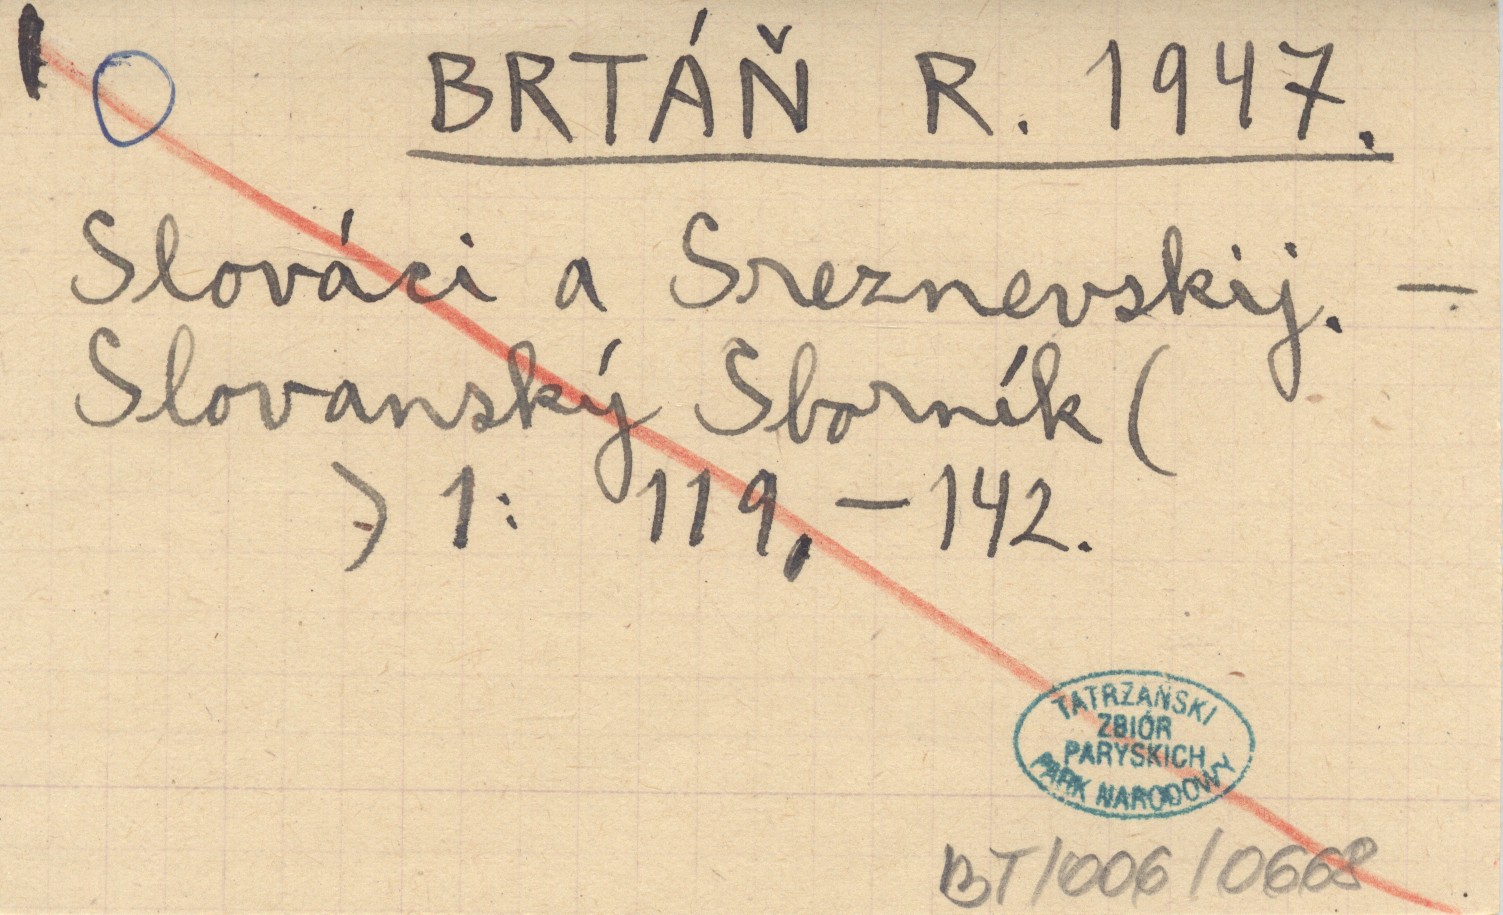 BRTÁŇ R. 1947.
Slováci a Sreznevskij. –
Slovanský Sborník (
) 1: 119, – 142.
TATRZAŃSKI
ZBIÓR
PARYSKICH
PARK NARODOWY
BT/006/0668